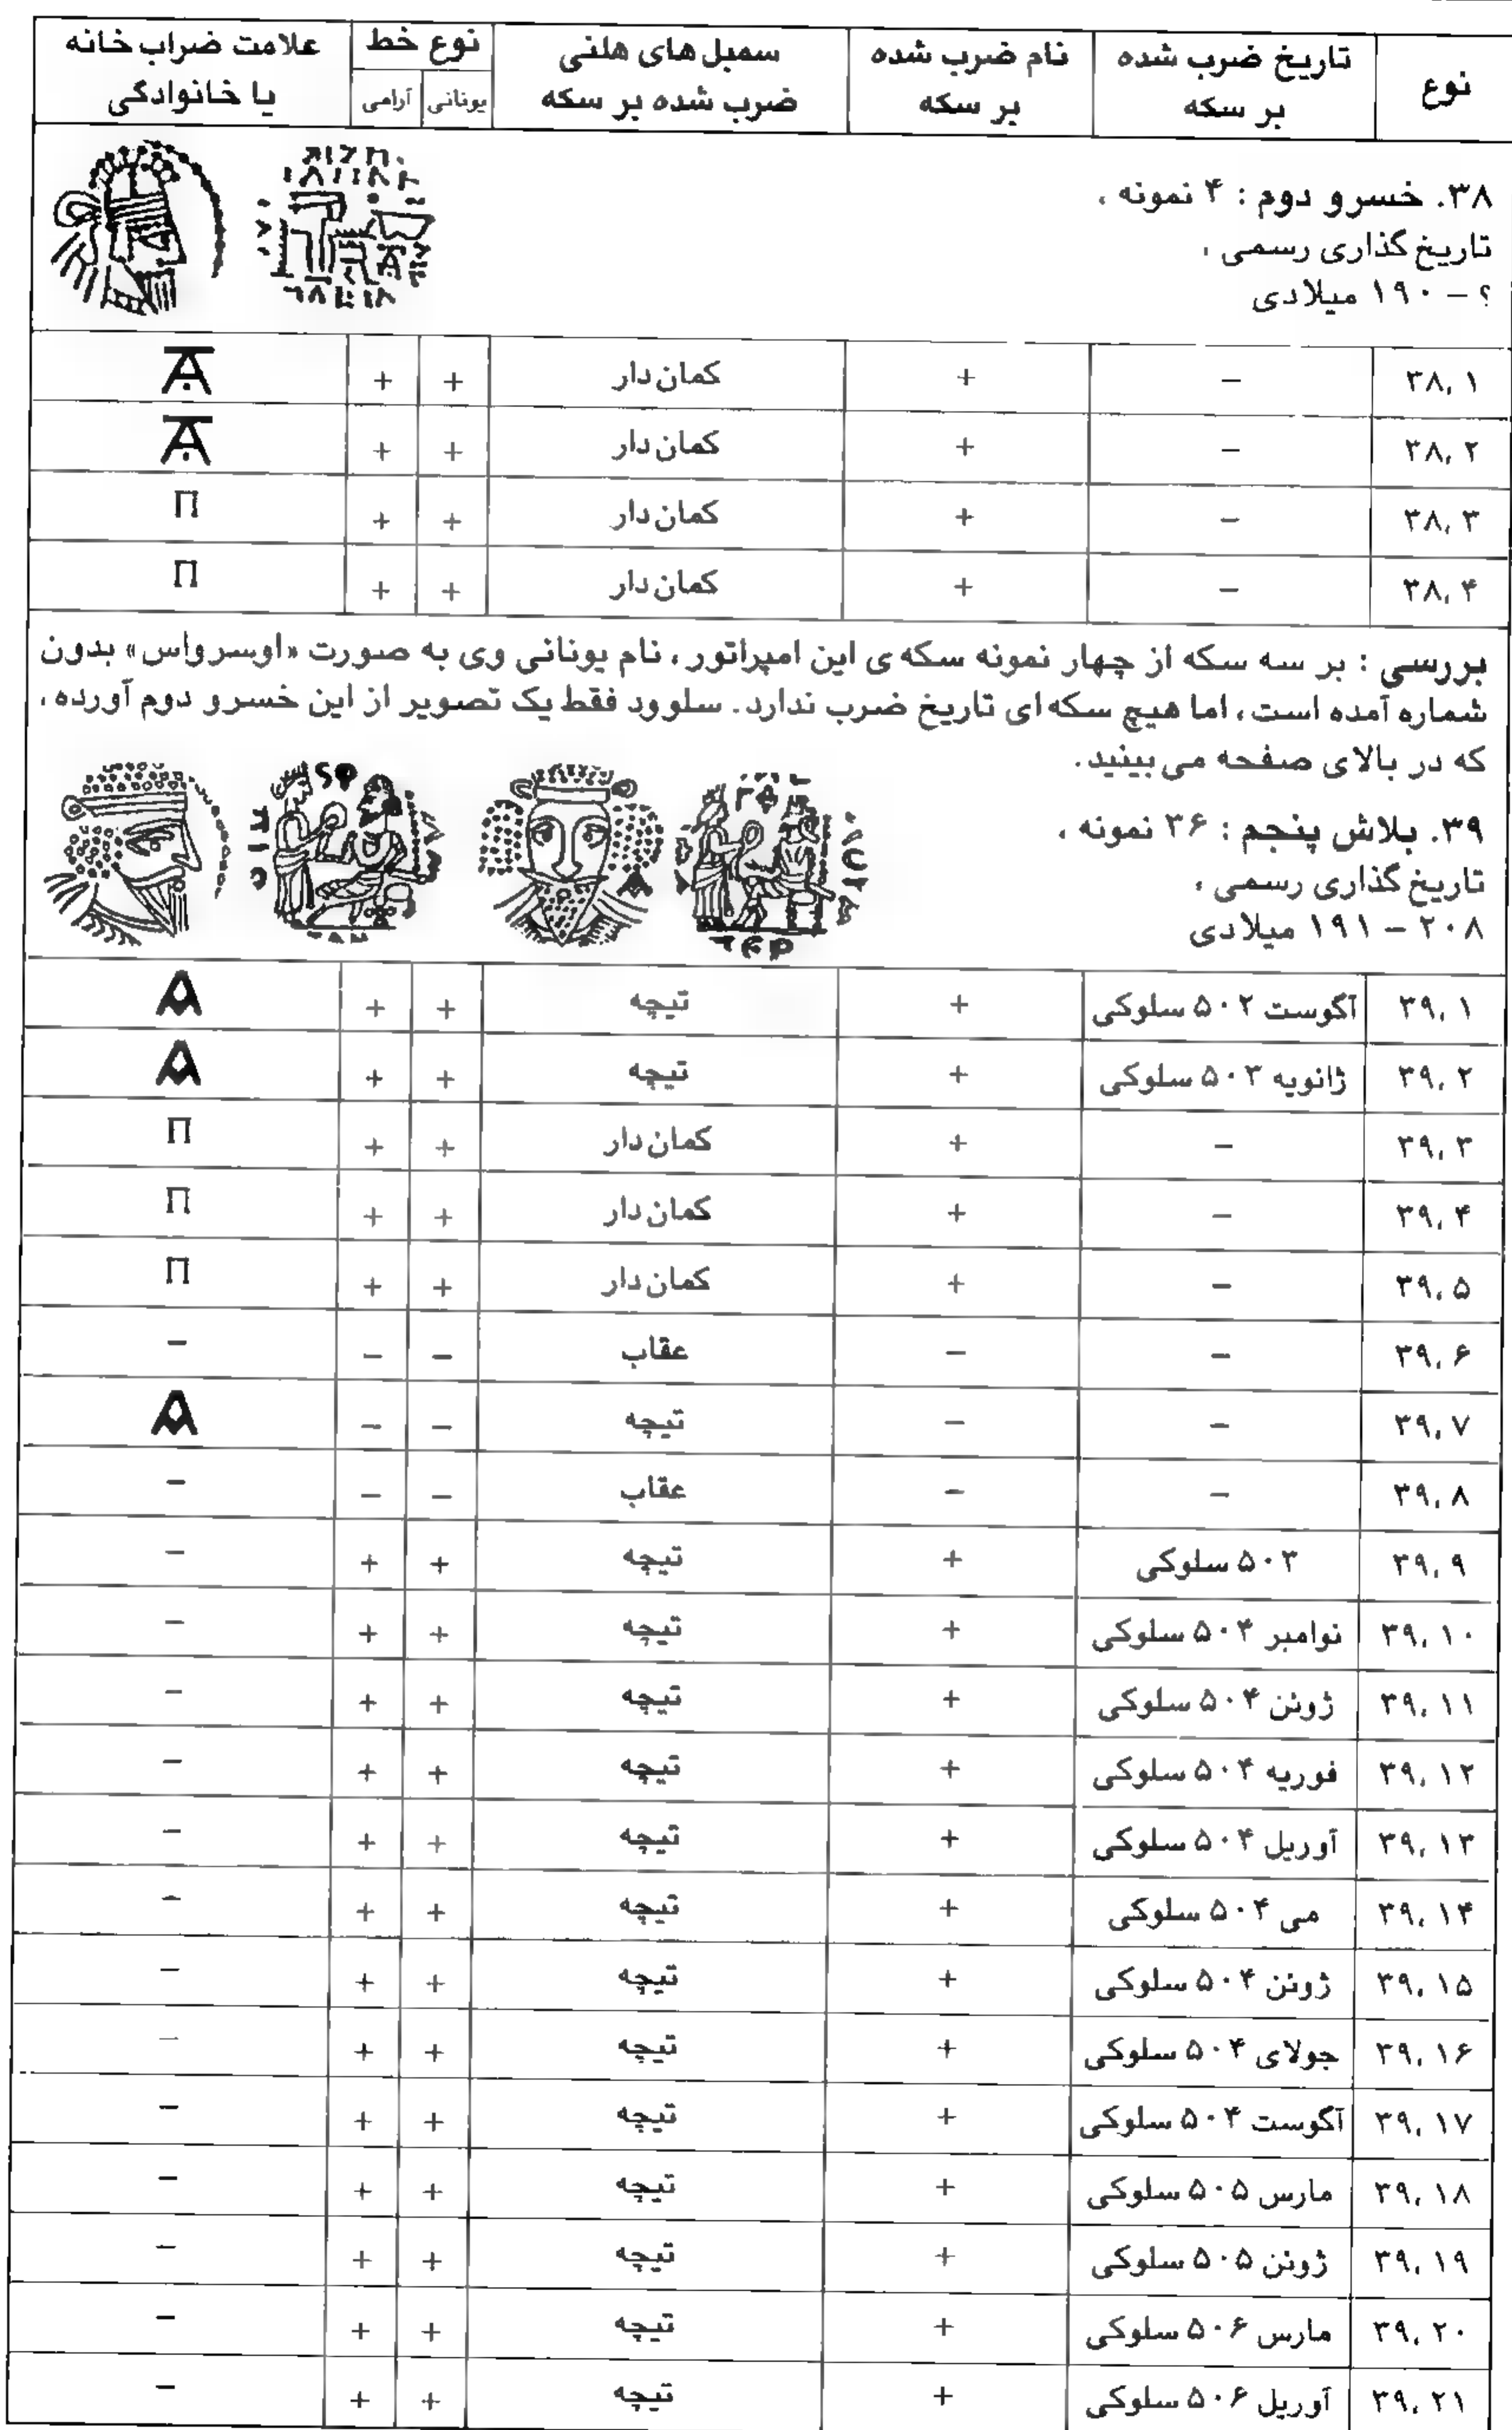 نوع | تاریخ ضرب شده بر سکه | نام ضرب شده بر سکه | سمبل های هلنی ضرب شده بر سکه | نوع خط یونانی | آرامی | علامت ضراب خانه یا خانوادگی
۳۸. خسرو دوم : ۴ نمونه ،
تاریخ گذاری رسمی ،
؟ – ۱۹۰ میلادی
۳۸,۱ | – | + | کمان دار | + | + |
۳۸,۲ | – | + | کمان دار | + | + |
۳۸,۳ | – | + | کمان دار | + | + | Π
۳۸,۴ | – | + | کمان دار | + | + | Π
بررسی : بر سه سکه از چهار نمونه سکه ی این امپراتور ، نام یونانی وی به صورت «اوسرواس» بدون
شماره آمده است ، اما هیچ سکه ای تاریخ ضرب ندارد . سلوود فقط یک تصویر از این خسرو دوم آورده ،
که در بالای صفحه می بینید .
۳۹. بلاش پنجم : ۳۶ نمونه ،
تاریخ گذاری رسمی ،
۲۰۸ – ۱۹۱ میلادی
۳۹,۱ | آگوست ۵۰۲ سلوکی | + | تیچه | + | + |
۳۹,۲ | ژانویه ۵۰۳ سلوکی | + | تیچه | + | + |
۳۹,۳ | – | + | کمان دار | + | + | Π
۳۹,۴ | – | + | کمان دار | + | + | Π
۳۹,۵ | – | + | کمان دار | + | + | Π
۳۹,۶ | – | – | عقاب | – | – | –
۳۹,۷ | – | – | تیچه | – | – |
۳۹,۸ | – | – | عقاب | – | – | –
۳۹,۹ | ۵۰۳ سلوکی | + | تیچه | + | + | –
۳۹,۱۰ | نوامبر ۵۰۴ سلوکی | + | تیچه | + | + | –
۳۹,۱۱ | ژوئن ۵۰۴ سلوکی | + | تیچه | + | + | –
۳۹,۱۲ | فوریه ۵۰۴ سلوکی | + | تیچه | + | + | –
۳۹,۱۳ | آوریل ۵۰۴ سلوکی | + | تیچه | + | + | –
۳۹,۱۴ | می ۵۰۴ سلوکی | + | تیچه | + | + | –
۳۹,۱۵ | ژوئن ۵۰۴ سلوکی | + | تیچه | + | + | –
۳۹,۱۶ | جولای ۵۰۴ سلوکی | + | تیچه | + | + | –
۳۹,۱۷ | آگوست ۵۰۴ سلوکی | + | تیچه | + | + | –
۳۹,۱۸ | مارس ۵۰۵ سلوکی | + | تیچه | + | + | –
۳۹,۱۹ | ژوئن ۵۰۵ سلوکی | + | تیچه | + | + | –
۳۹,۲۰ | مارس ۵۰۶ سلوکی | + | تیچه | + | + | –
۳۹,۲۱ | آوریل ۵۰۶ سلوکی | + | تیچه | + | + | –